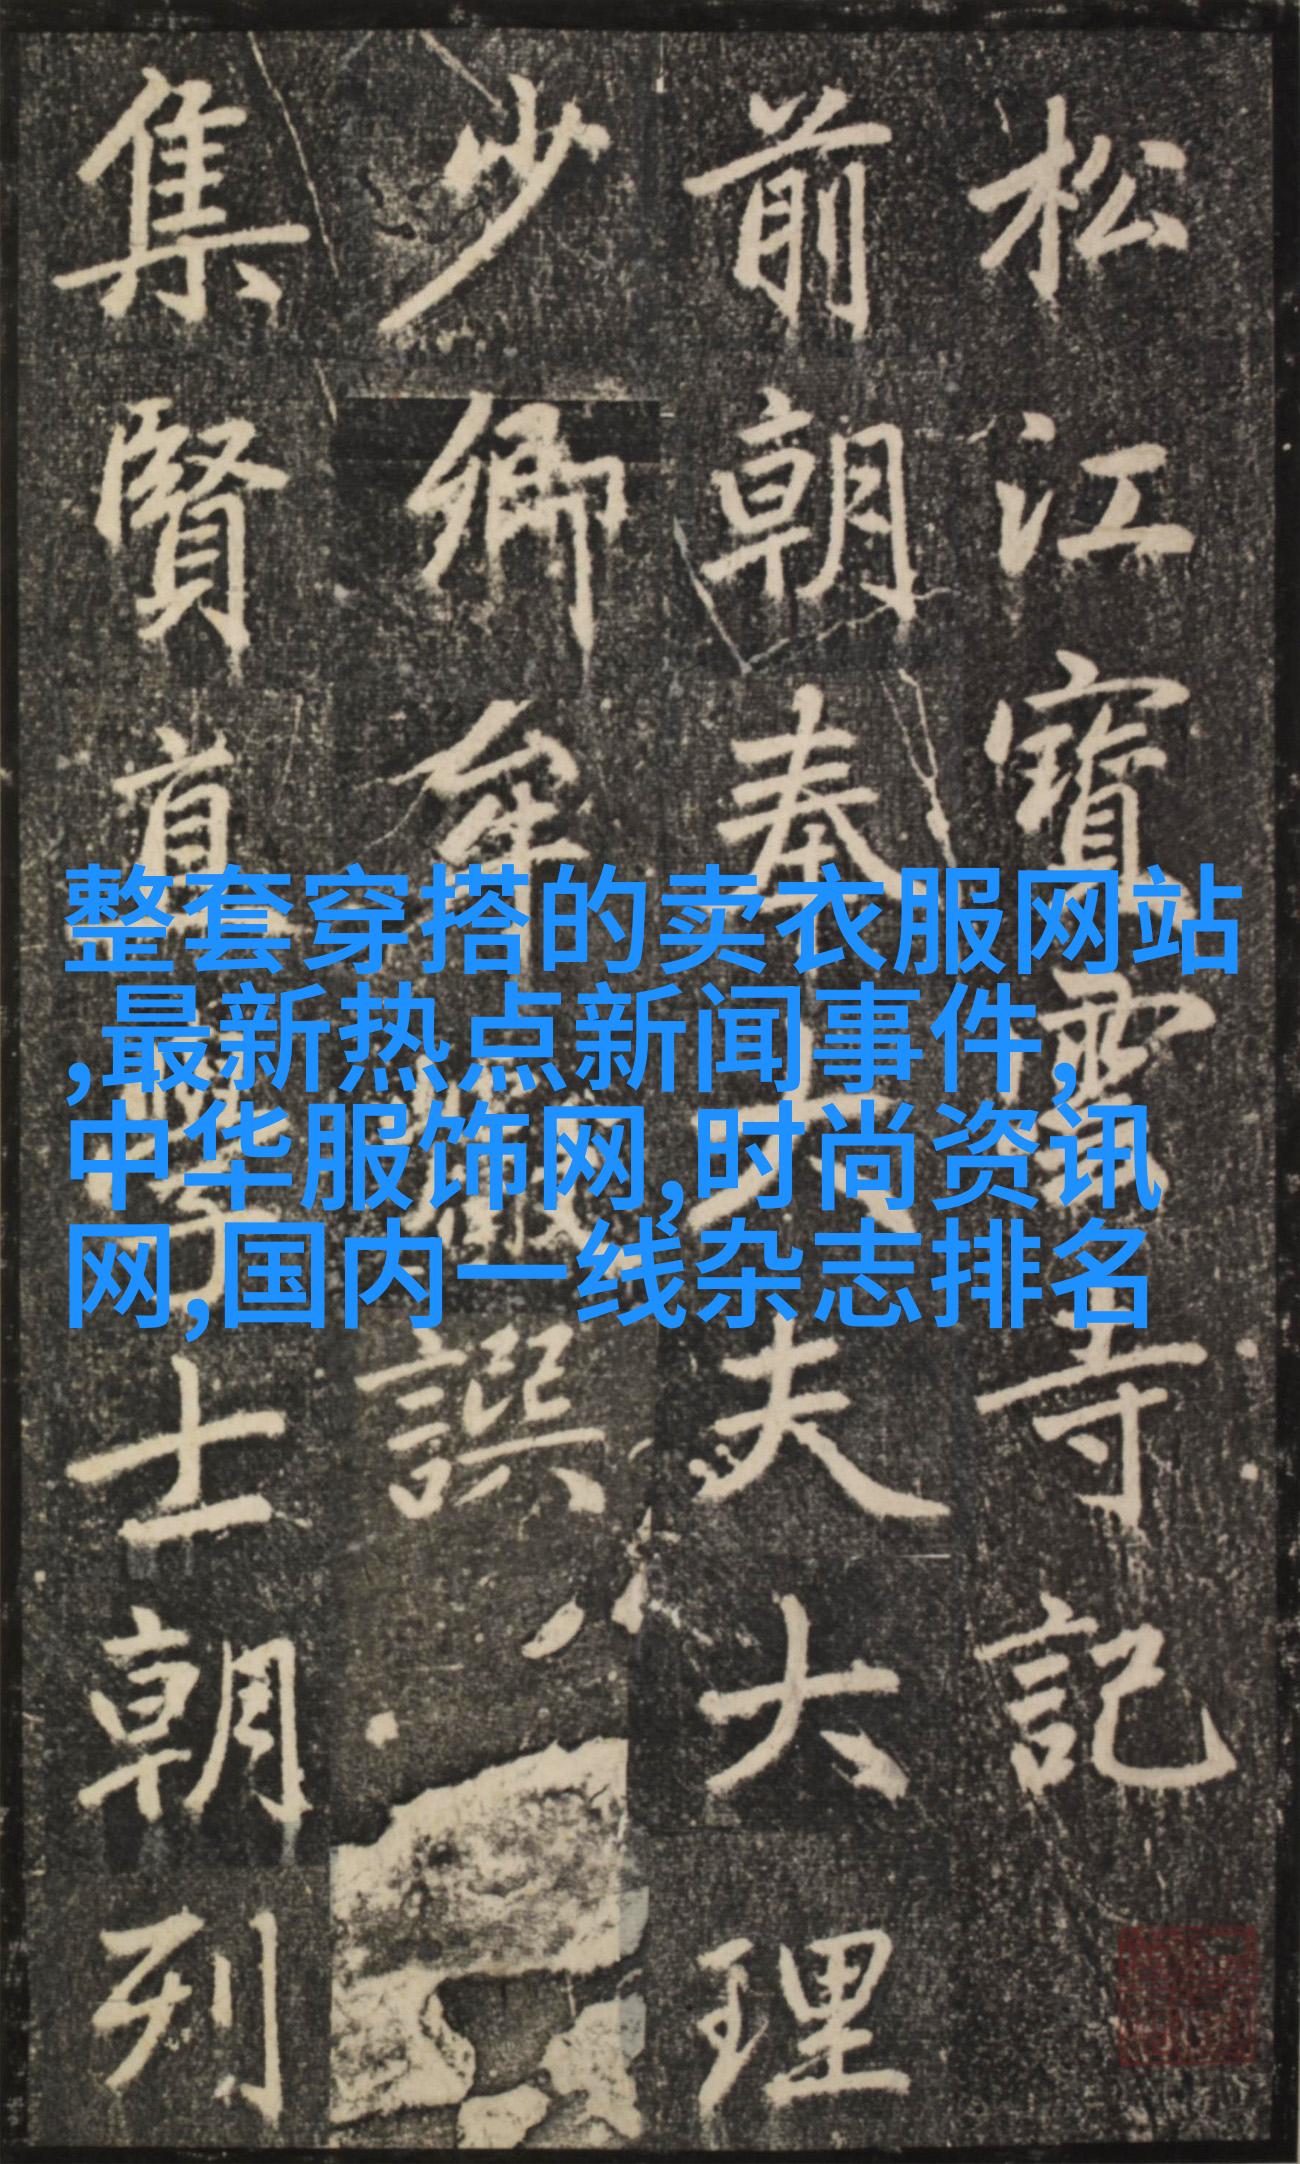 松江寶雲寺記
前朝奉大夫大理
少卿牟巘譔
集賢直學士朝列
整套穿搭的卖衣服网站
,最新热点新闻事件,
中华服饰网,时尚资讯
网,国内一线杂志排名